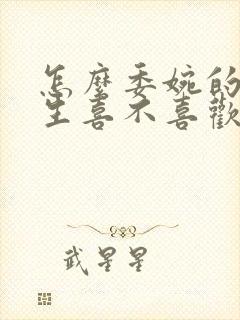 怎麼委婉的
生喜不喜歡
武星星